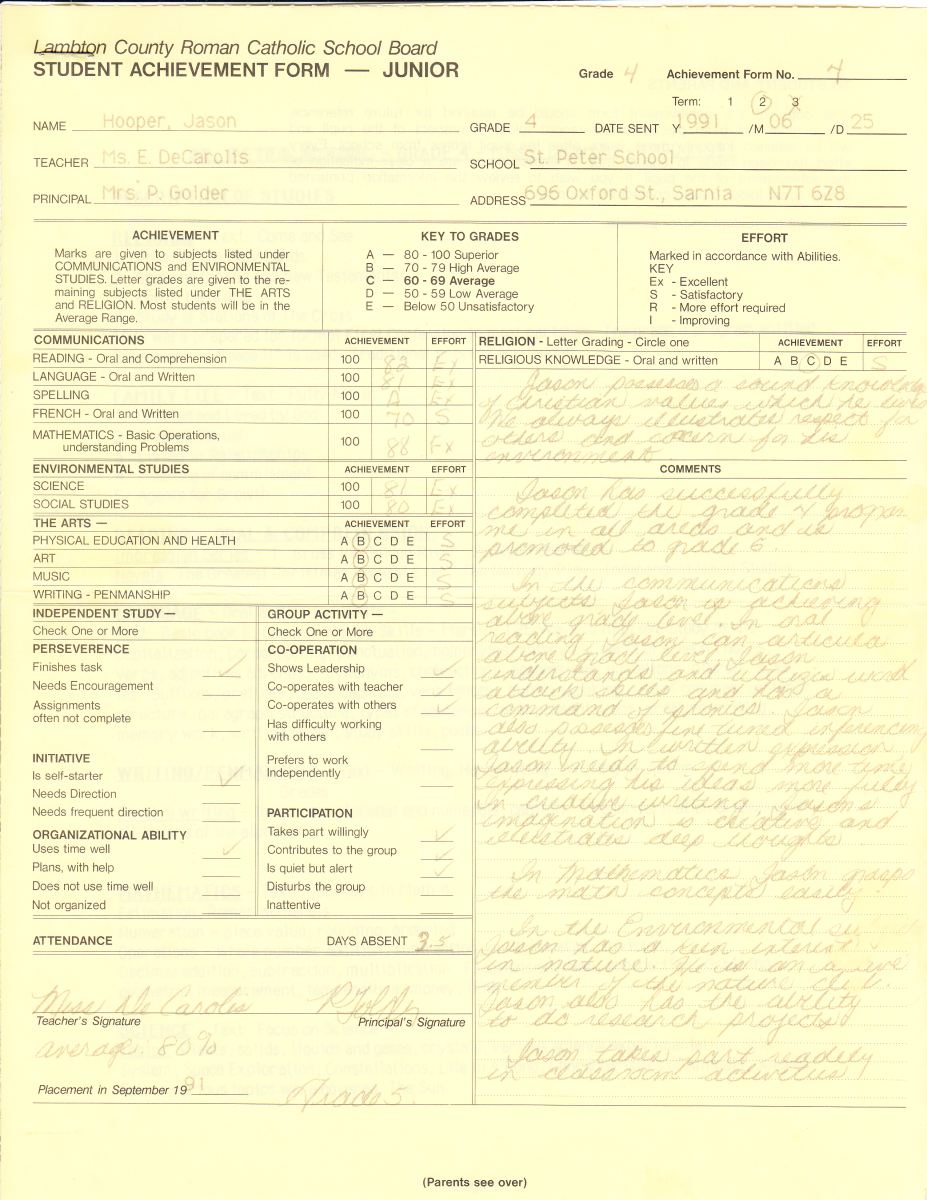 Lambton County Roman Catholic School Board
STUDENT ACHIEVEMENT FORM — JUNIOR
Grade 4 Achievement Form No. 4
Term: 1 2 3
NAME Hooper, Jason GRADE 4 DATE SENT Y 1991 /M 06 /D 25
TEACHER Ms. E. DeCarolis SCHOOL St. Peter School
PRINCIPAL Mrs. P. Golder ADDRESS 696 Oxford St., Sarnia N7T 6Z8
ACHIEVEMENT
Marks are given to subjects listed under
COMMUNICATIONS and ENVIRONMENTAL
STUDIES. Letter grades are given to the re-
maining subjects listed under THE ARTS
and RELIGION. Most students will be in the
Average Range.
KEY TO GRADES
A — 80 - 100 Superior
B — 70 - 79 High Average
C — 60 - 69 Average
D — 50 - 59 Low Average
E — Below 50 Unsatisfactory
EFFORT
Marked in accordance with Abilities.
KEY
Ex - Excellent
S - Satisfactory
R - More effort required
I - Improving
COMMUNICATIONS ACHIEVEMENT EFFORT
READING - Oral and Comprehension 100 82 Ex
LANGUAGE - Oral and Written 100 81 Ex
SPELLING 100 A Ex
FRENCH - Oral and Written 100 70 S
MATHEMATICS - Basic Operations,
understanding Problems 100 86 Ex
ENVIRONMENTAL STUDIES ACHIEVEMENT EFFORT
SCIENCE 100 81 Ex
SOCIAL STUDIES 100 80 Ex
THE ARTS — ACHIEVEMENT EFFORT
PHYSICAL EDUCATION AND HEALTH A B C D E S
ART A B C D E S
MUSIC A B C D E S
WRITING - PENMANSHIP A B C D E S
INDEPENDENT STUDY —
Check One or More
PERSEVERENCE
Finishes task
Needs Encouragement
Assignments
often not complete
INITIATIVE
Is self-starter
Needs Direction
Needs frequent direction
ORGANIZATIONAL ABILITY
Uses time well
Plans, with help
Does not use time well
Not organized
GROUP ACTIVITY —
Check One or More
CO-OPERATION
Shows Leadership
Co-operates with teacher
Co-operates with others
Has difficulty working
with others
Prefers to work
Independently
PARTICIPATION
Takes part willingly
Contributes to the group
Is quiet but alert
Disturbs the group
Inattentive
ATTENDANCE DAYS ABSENT 3.5
Miss De Carolis P Golder
Teacher's Signature Principal's Signature
average: 80%
Placement in September 1991 Grade 5
RELIGION - Letter Grading - Circle one ACHIEVEMENT EFFORT
RELIGIOUS KNOWLEDGE - Oral and written A B C D E S
Jason possesses a sound knowledge
of Christian values which he lives
He always illustrates respect for
others and concern for his
environment
COMMENTS
Jason has successfully
completed the grade 4 program
me in all areas and is
promoted to grade 5.
In the communications
subjects Jason is achieving
above grade level. In oral
reading Jason can articula
above grade level. Jason
understands and utilizes word
attack skills and has a
command of phonics. Jason
also possesses fine tuned inferencing
ability. In written expression
Jason needs to spend more time
expressing his ideas more fully
In creative writing Jason's
imagination is creative and
illustrates deep thoughts
In Mathematics Jason grasps
the math concepts easily!
In the Environmental
Jason has a keen interest
in nature. He is an active
member of the nature club.
Jason also has the ability
to do research projects!
Jason takes part readily
in classroom activities!
(Parents see over)